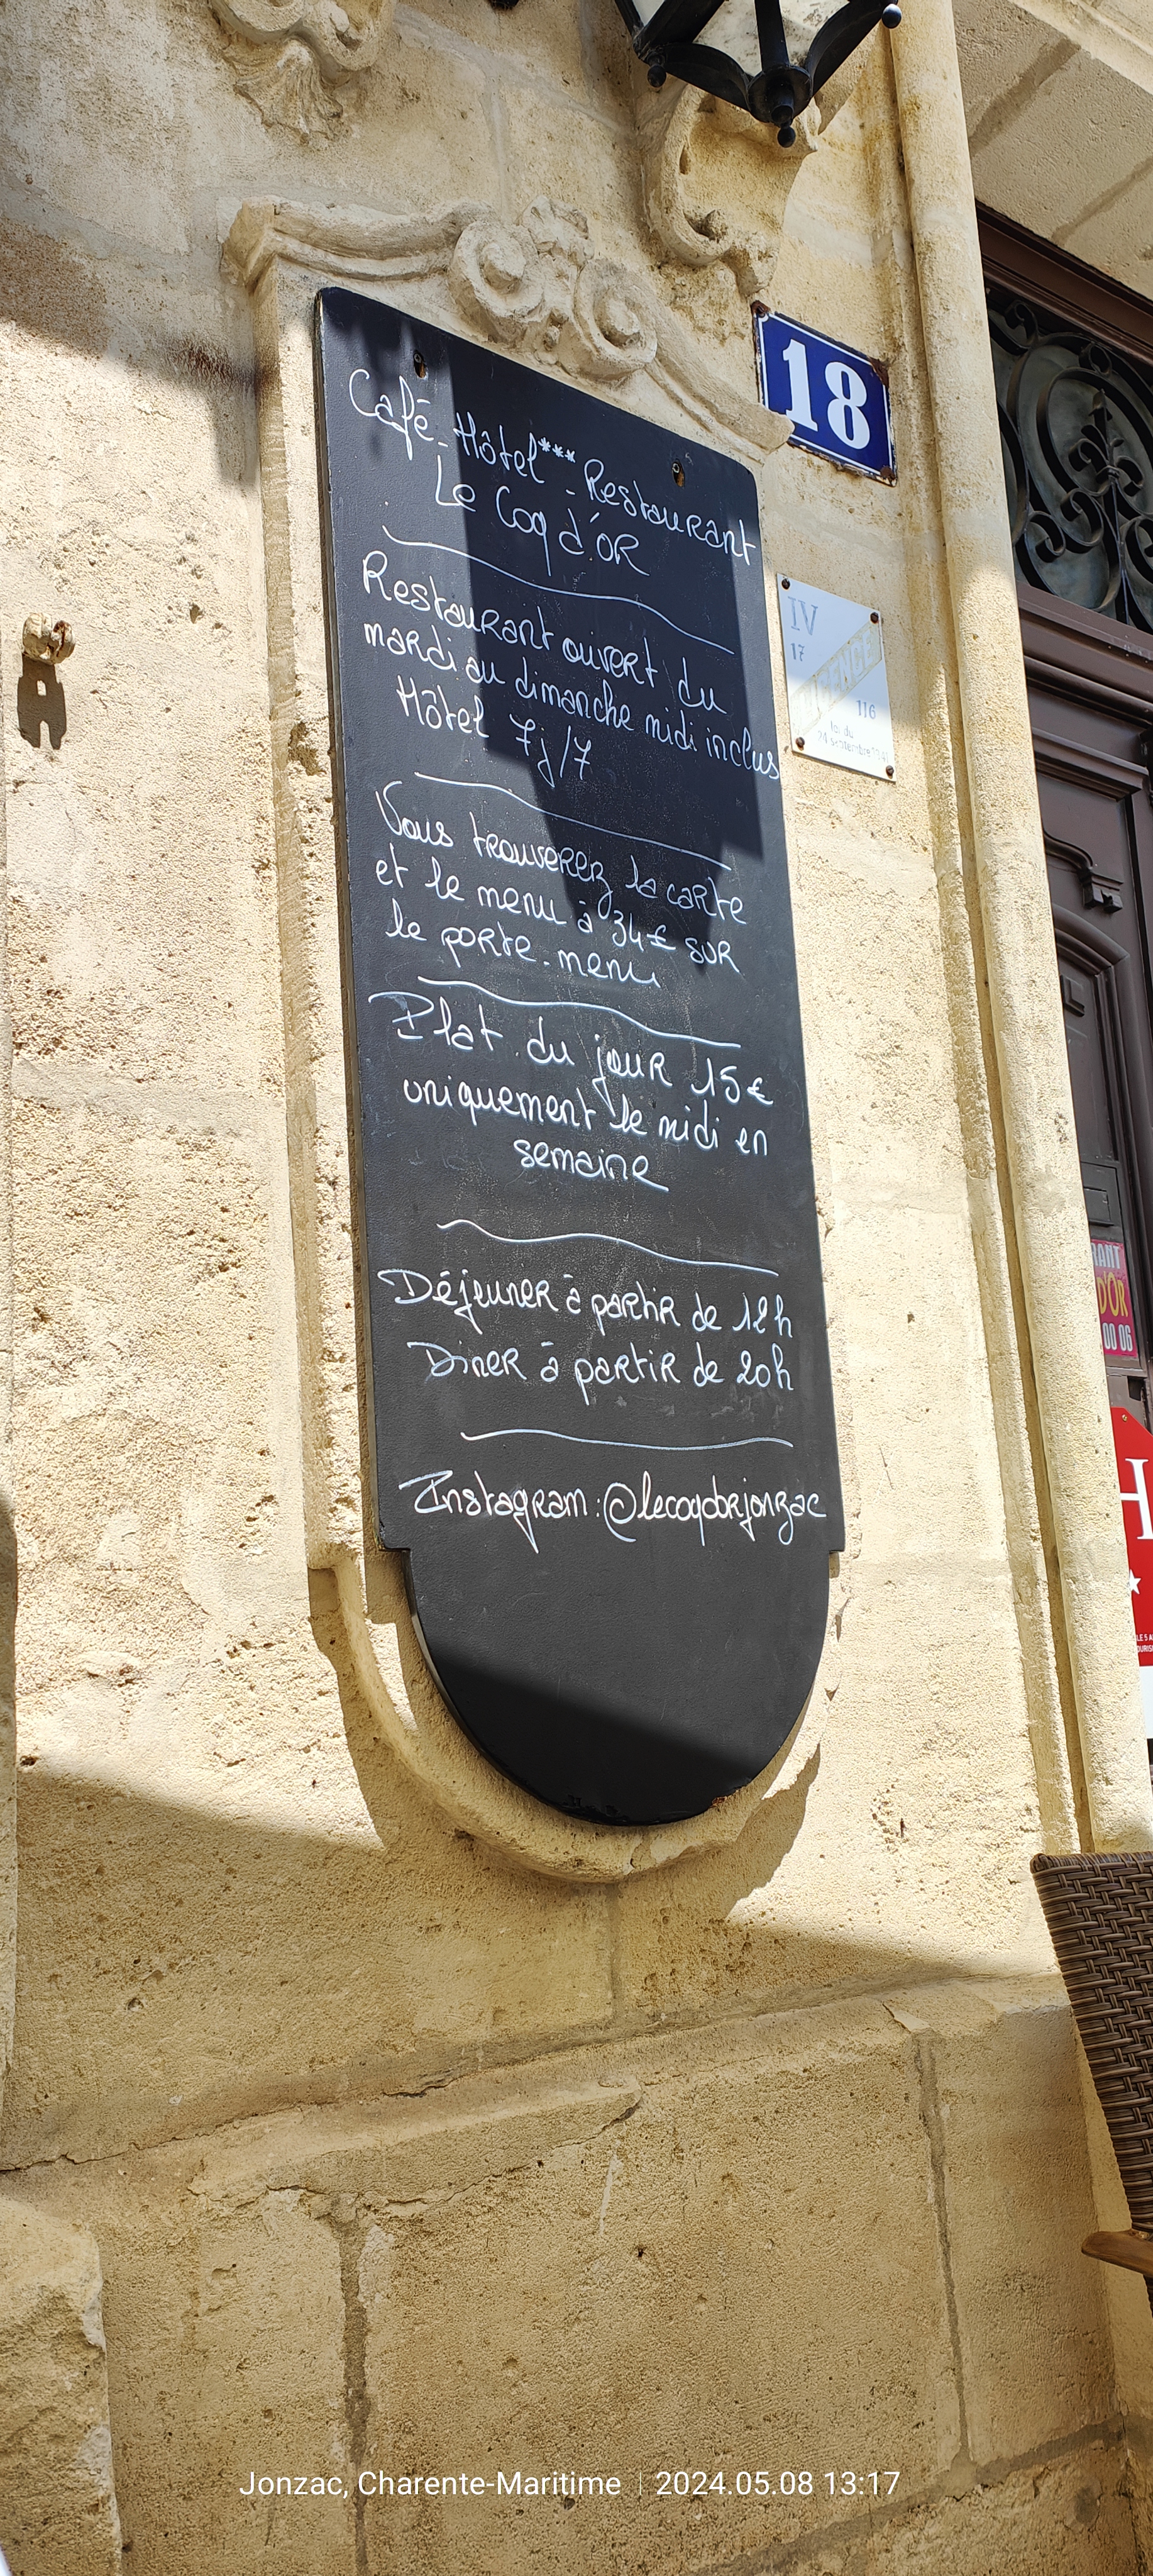 Café-Hôtel***-Restaurant
Le Coq d'OR
18
Restaurant ouvert du
mardi au dimanche midi inclus
Hôtel 7j/7
IV
17
116
loi du
Vous trouverez la carte
et le menu à 34€ sur
le porte-menu
Plat du jour 15€
uniquement le midi en
semaine
Déjeuner à partir de 12h
Diner à partir de 20h
RANT
D'OR
00 06
Instagram:@lecoqdorjonzac
H
Jonzac, Charente-Maritime | 2024.05.08 13:17